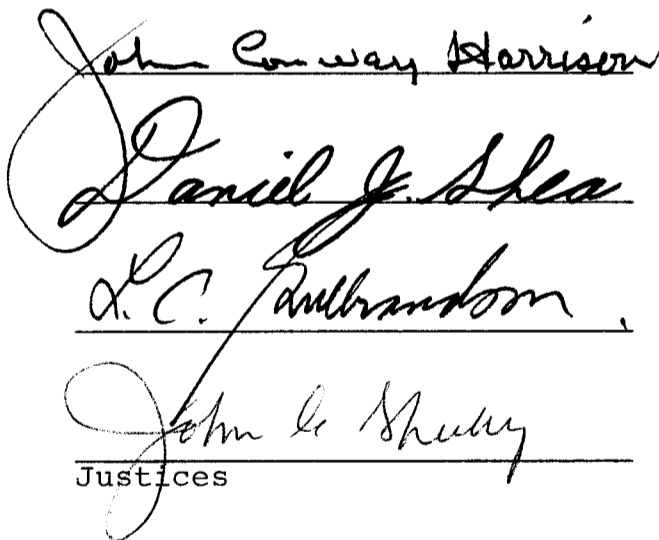 John Conway Harrison
Daniel J. Shea
L. C. Gulbrandson
John C. Sheehy
Justices